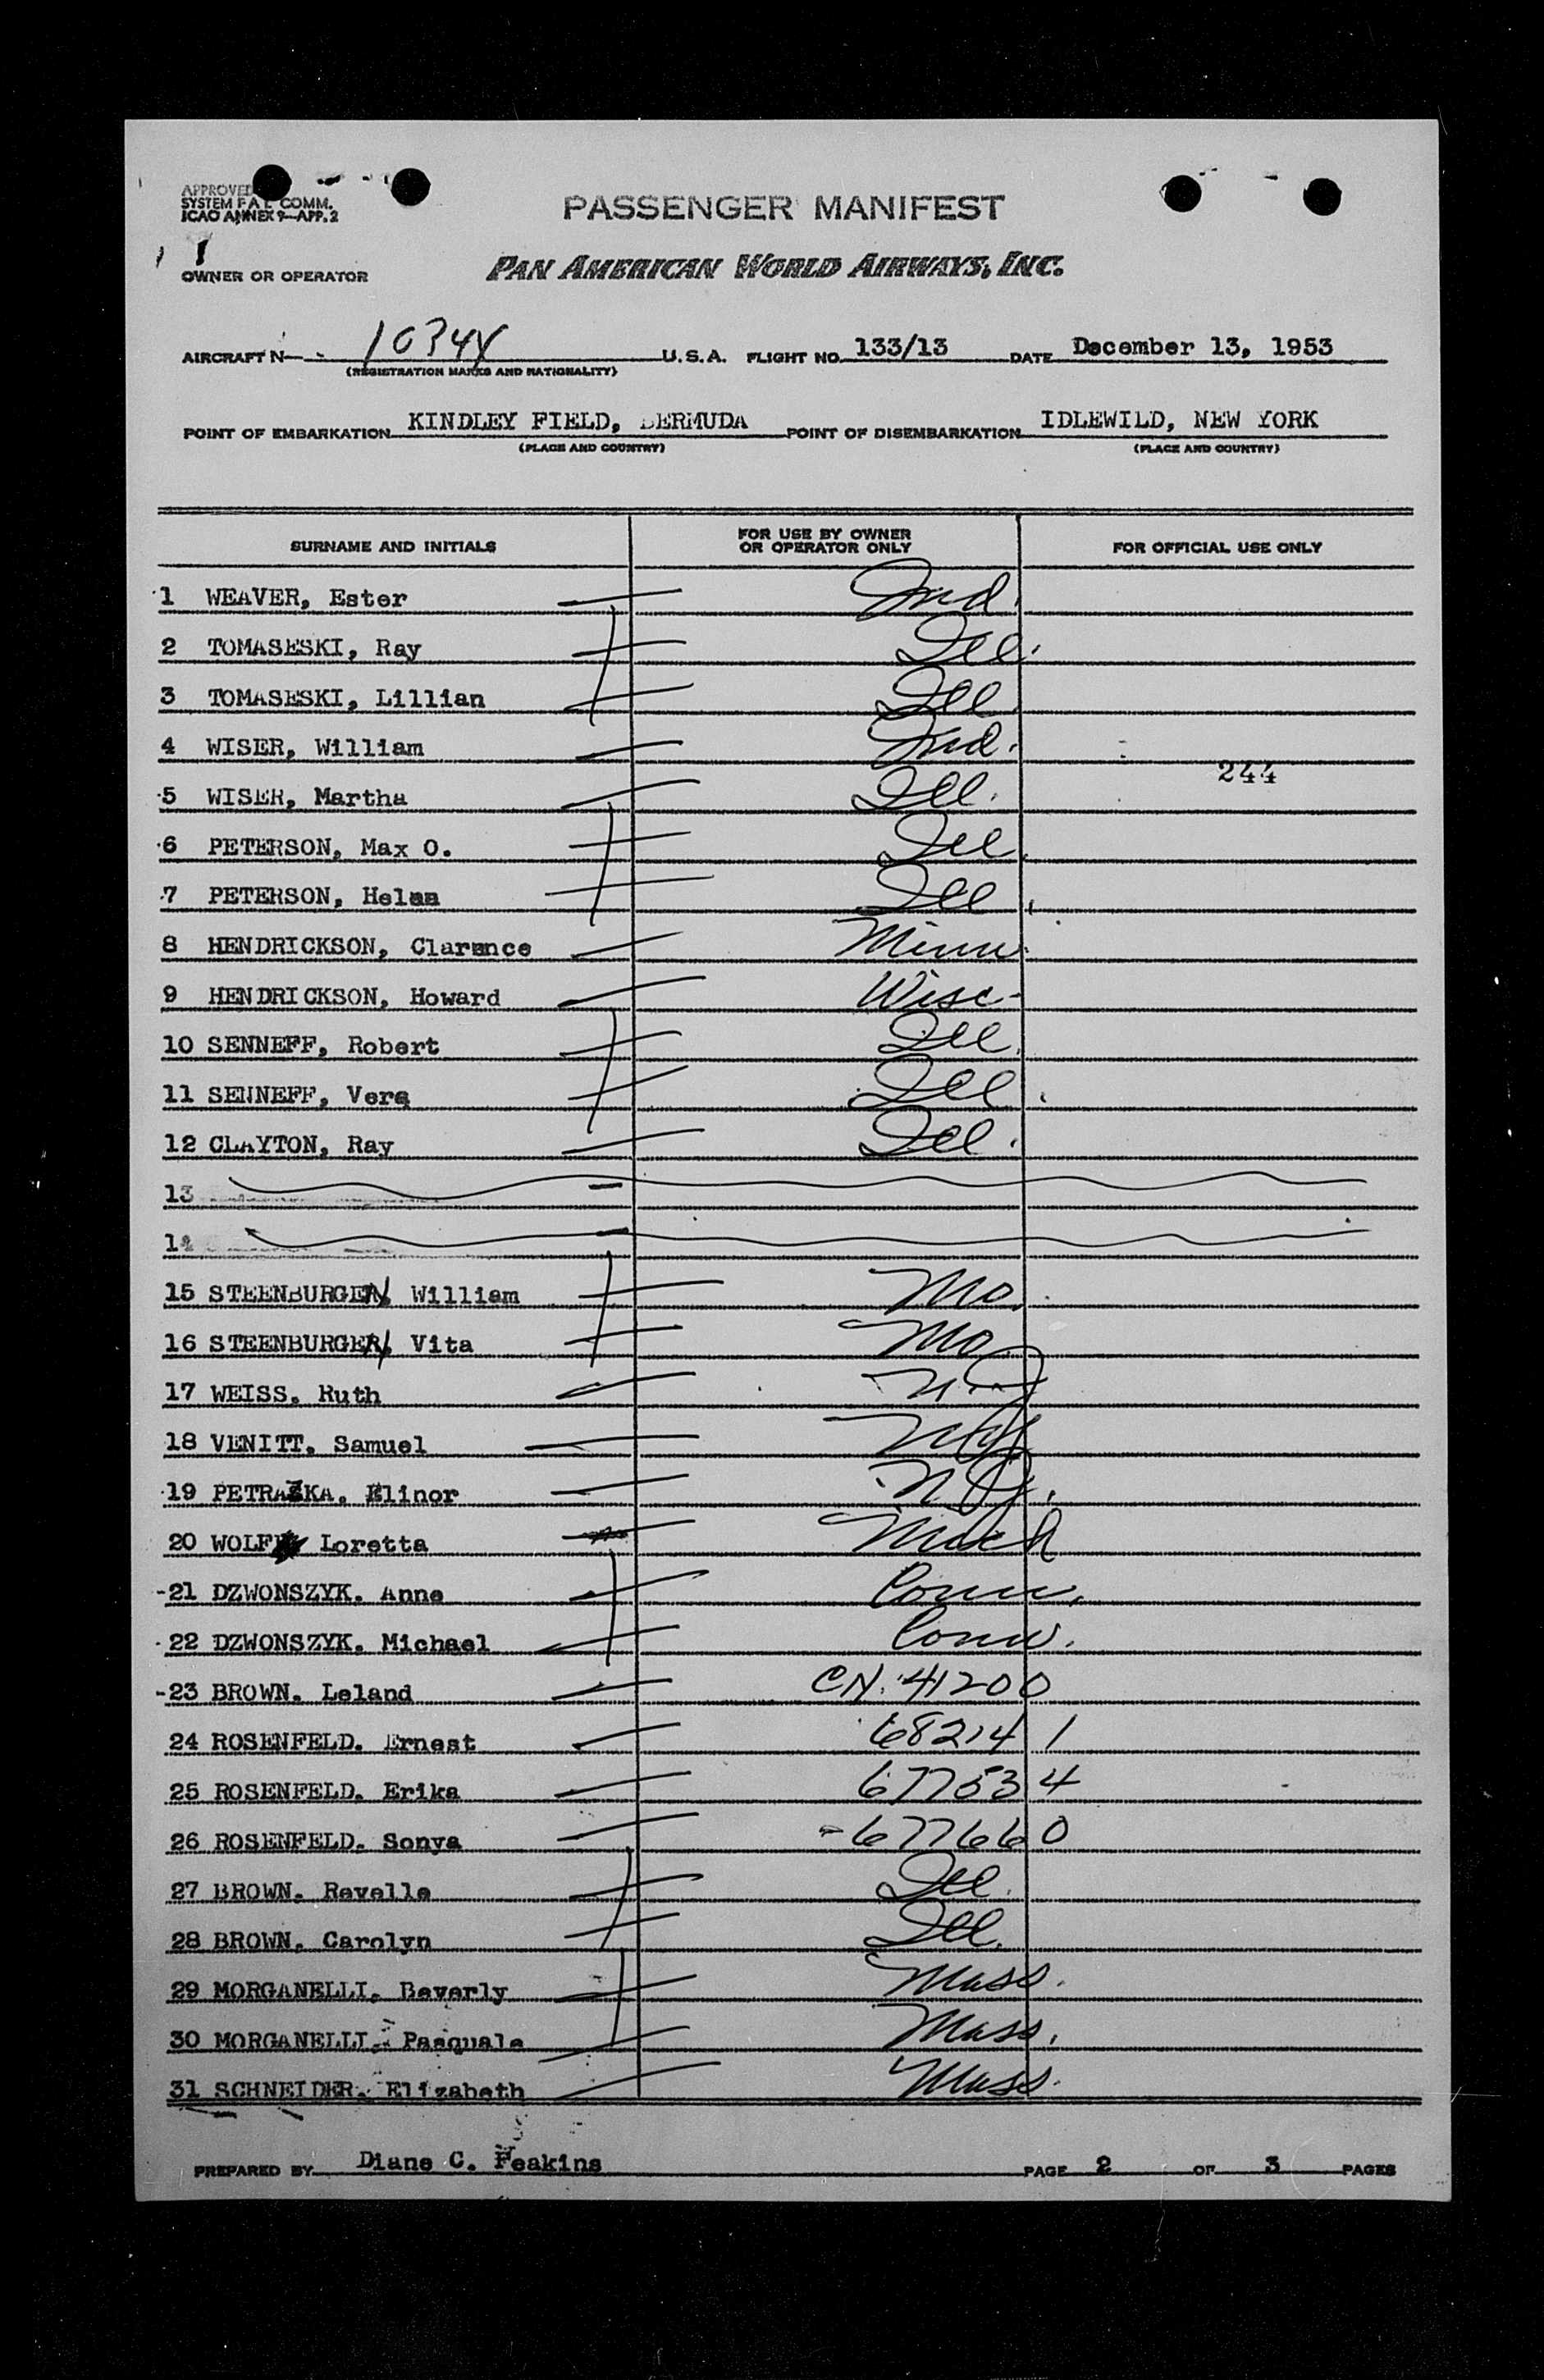 APPROVED
SYSTEM F A L COMM.
ICAO ANNEX 9—APP. 2
PASSENGER MANIFEST
OWNER OR OPERATOR PAN AMERICAN WORLD AIRWAYS, INC.
AIRCRAFT N— 1034V U.S.A. FLIGHT NO. 133/13 DATE December 13, 1953
(REGISTRATION MARKS AND NATIONALITY)
POINT OF EMBARKATION KINDLEY FIELD, BERMUDA POINT OF DISEMBARKATION IDLEWILD, NEW YORK
(PLACE AND COUNTRY) (PLACE AND COUNTRY)
SURNAME AND INITIALS FOR USE BY OWNER OR OPERATOR ONLY FOR OFFICIAL USE ONLY
1 WEAVER, Ester Ind.
2 TOMASESKI, Ray Ill.
3 TOMASESKI, Lillian Ill
4 WISER, William Ind.
244
5 WISER, Martha Ill.
6 PETERSON, Max O. Ill
7 PETERSON, Helen Ill
8 HENDRICKSON, Clarence Minn.
9 HENDRICKSON, Howard Wisc.
10 SENNEFF, Robert Ill.
11 SENNEFF, Vera Ill
12 CLAYTON, Ray Ill.
13
14
15 STEENBURGEN, William Mo.
16 STEENBURGEN, Vita Mo
17 WEISS. Ruth N.J
18 VENITT. Samuel NY
19 PETRASKA. Elinor
20 WOLF Loretta Mich
21 DZWONSZYK. Anne Conn.
22 DZWONSZYK. Michael Conn.
23 BROWN. Leland CN. 41200
24 ROSENFELD. Ernest 682141
25 ROSENFELD. Erika 677534
26 ROSENFELD. Sonya 677660
27 BROWN. Revelle Ill.
28 BROWN. Carolyn Ill.
29 MORGANELLI. Beverly Mass.
30 MORGANELLI. Pasquale Mass.
31 SCHNEIDER. Elizabeth Mass.
PREPARED BY Diane C. Feakins PAGE 2 OF 3 PAGES